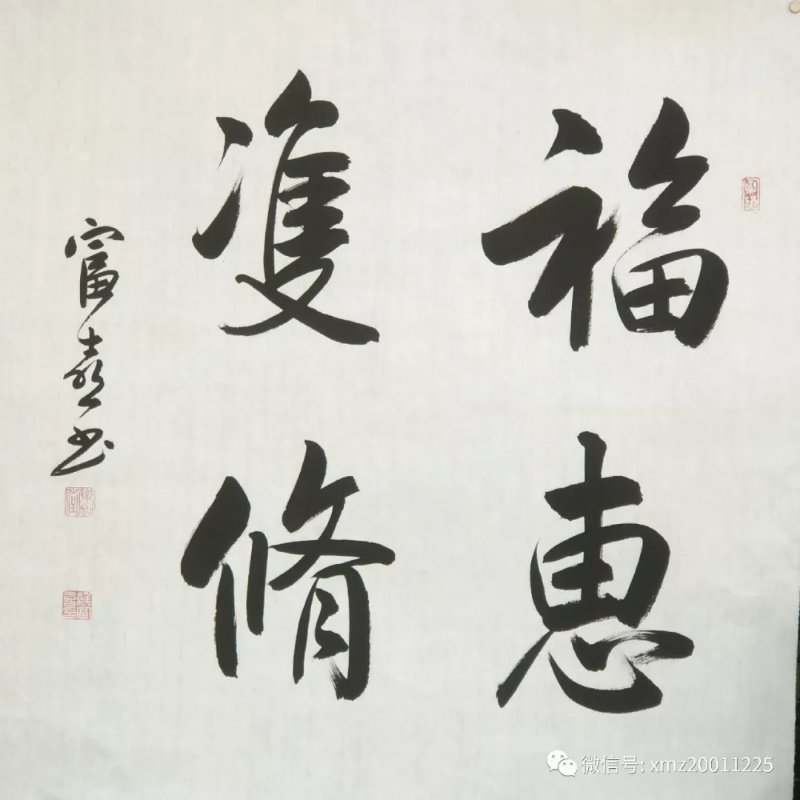 福惠
雙脩
富喜书
微信号: xmz20011225